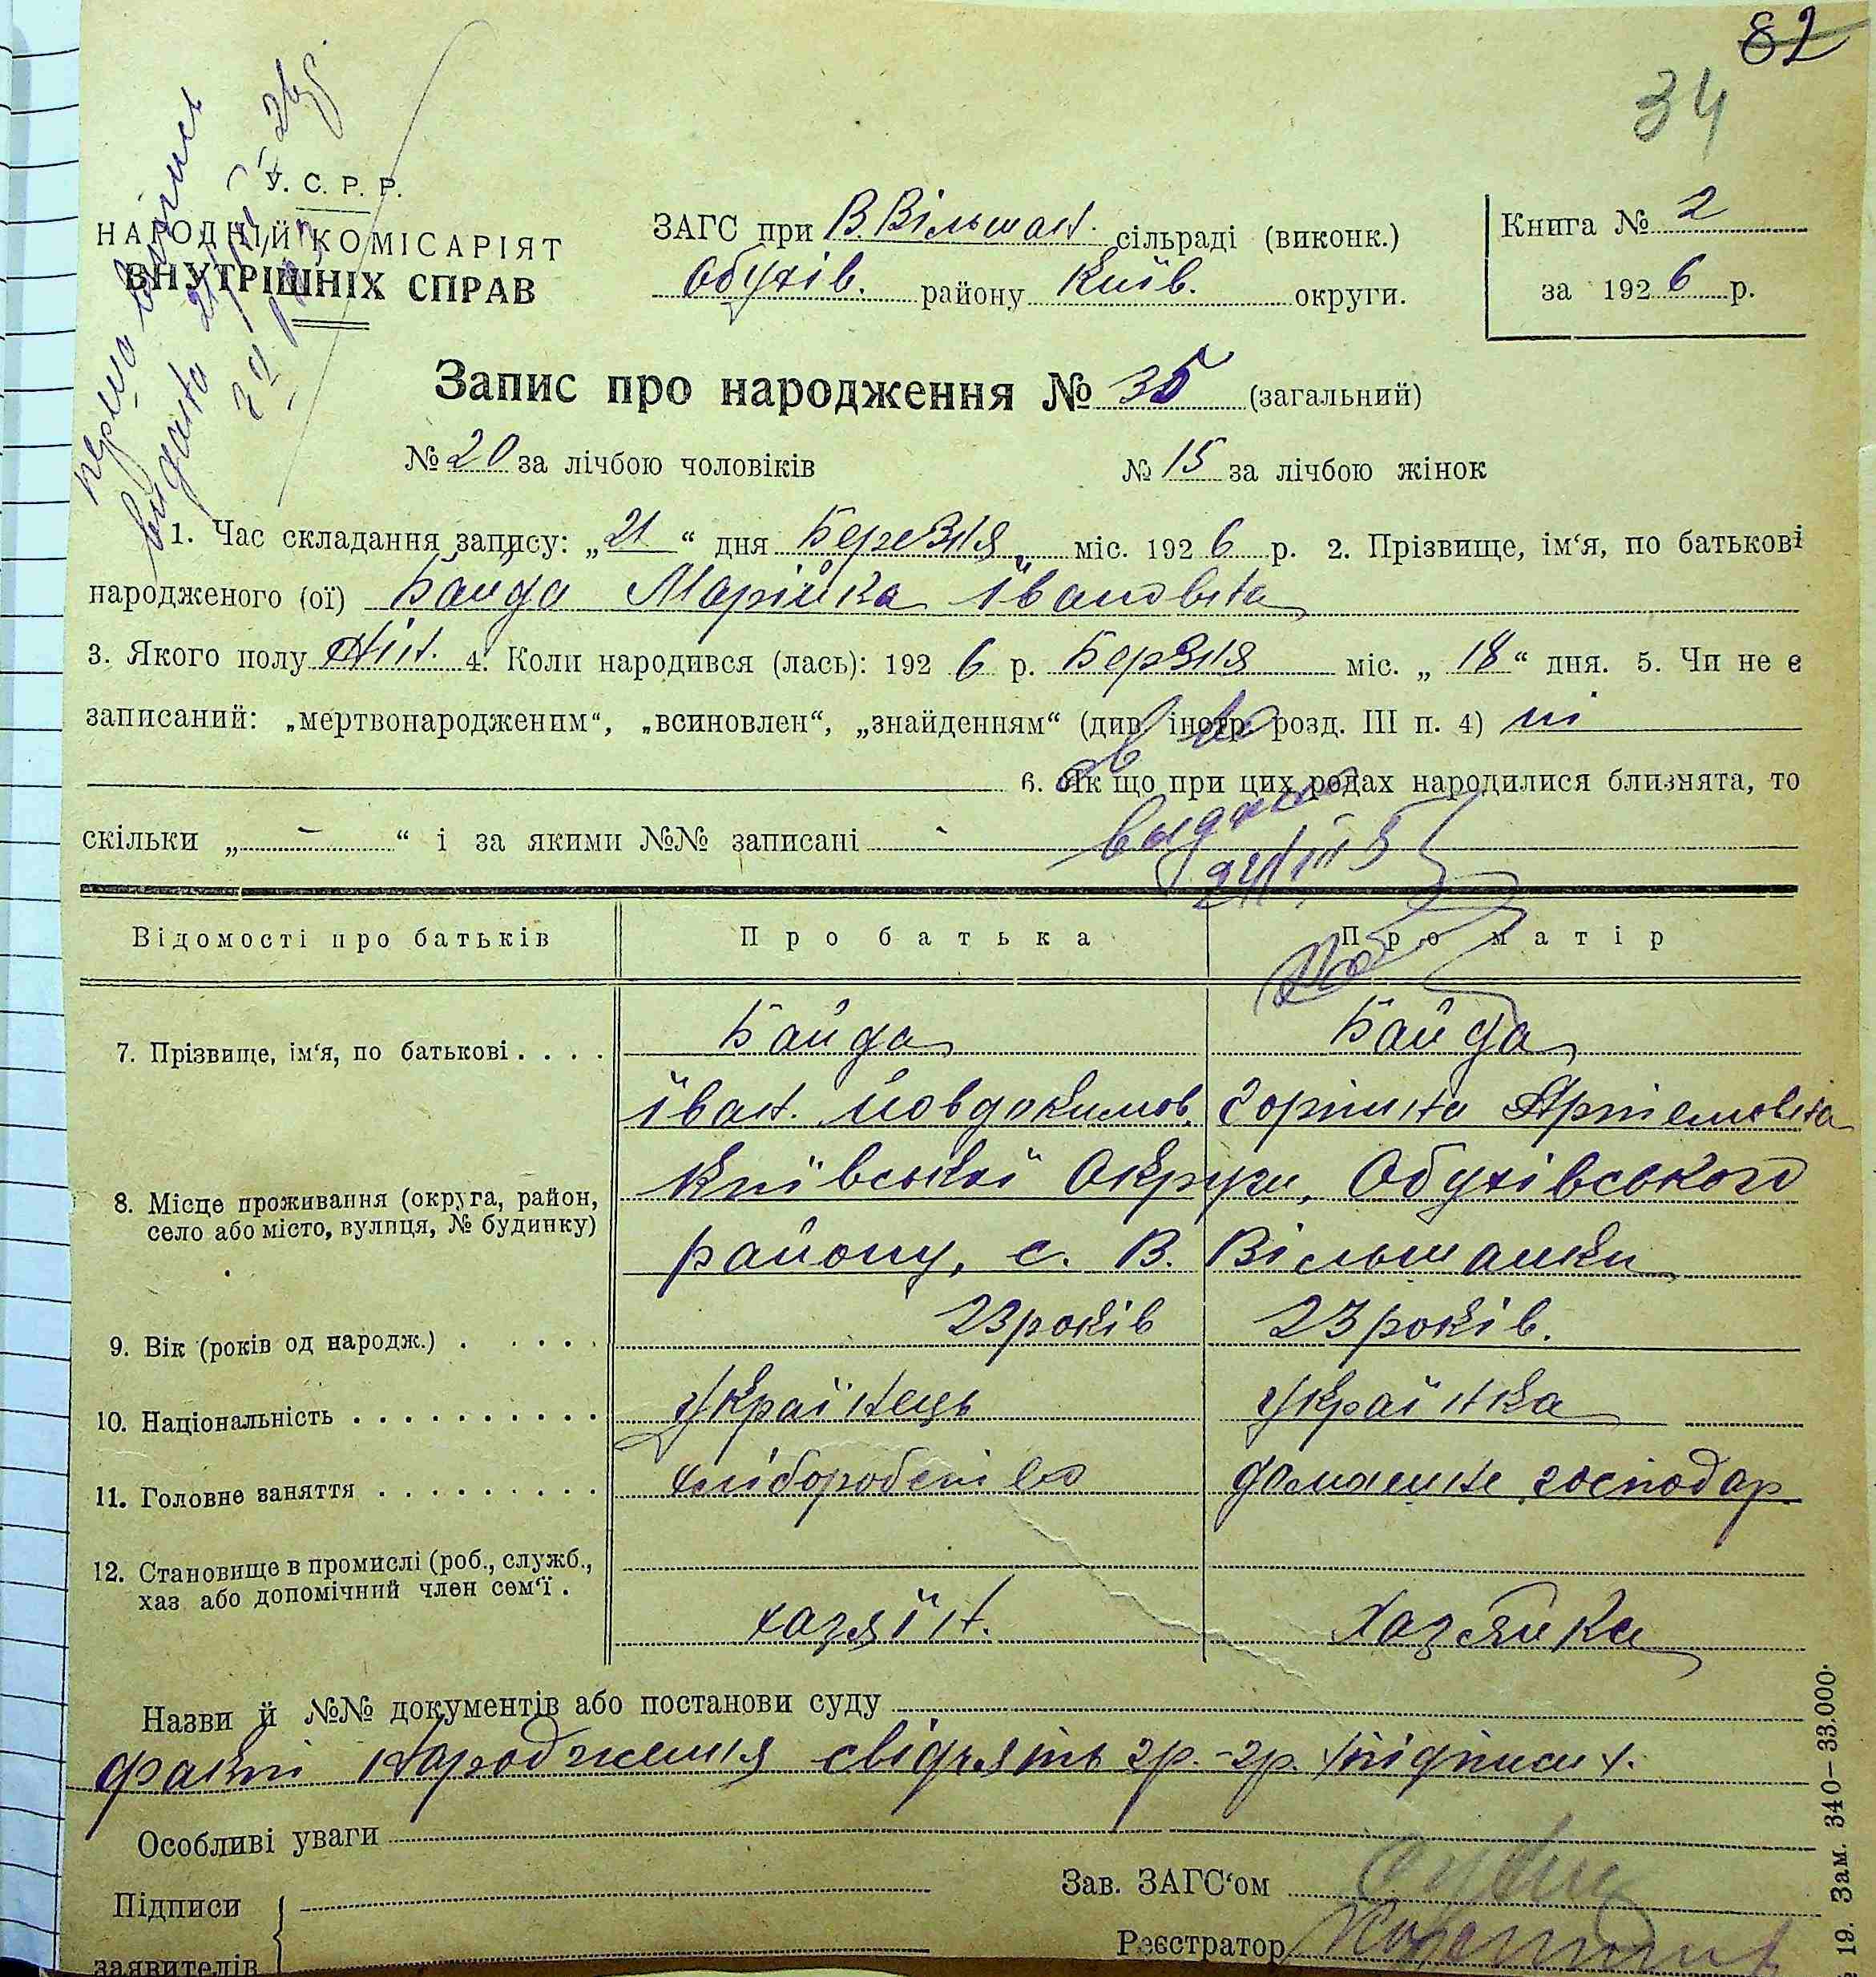 82
34
У. С. Р. Р.
НАРОДНІЙ КОМІСАРІЯТ
ВНУТРІШНІХ СПРАВ
ЗАГС при В. Вільшан. сільраді (виконк.)
Обухів. району Київ. округи.
Книга № 2
за 1926 р.
перша випись
видана
Запис про народження № 35 (загальний)
№ 20 за лічбою чоловіків № 15 за лічбою жінок
1. Час складання запису: „21“ дня Березня міс. 1926 р. 2. Прізвище, ім‘я, по батькові
народженого (ої) Байда Марійка Івановна
3. Якого полу жін. 4. Коли народився (лась): 1926 р. Березня міс. „18“ дня. 5. Чи не є
записаний: „мертвонародженим“, „всиновлен“, „знайденням“ (див. інстр. розд. III п. 4) ні
6. Як що при цих родах народилися близнята, то
скільки „-“ і за якими №№ записані -
Відомості про батьків Про батька Про матір
7. Прізвище, ім‘я, по батькові . . . . Байда Байда
Іван. Йовдокимов. Горпина Артемовна
8. Місце проживання (округа, район, село або місто, вулиця, № будинку) Київської Округи, Обухівського
району, с. В. Вільшанки
9. Вік (років од народж.) . . . . . 23 років 23 років.
10. Національність . . . . . . . . . . Українець Українка
11. Головне заняття . . . . . . . . . хліборобство домашнє господар.
12. Становище в промислі (роб., служб.,
хаз. або допомічний член сем‘ї . хазяїн. Хазяйка
Назви й №№ документів або постанови суду
факт народження свідчять гр.-гр. підписи
Особливі уваги
Зав. ЗАГС‘ом
Підписи
Реєстратор
заявителів
19. Зам. 340—33.000.